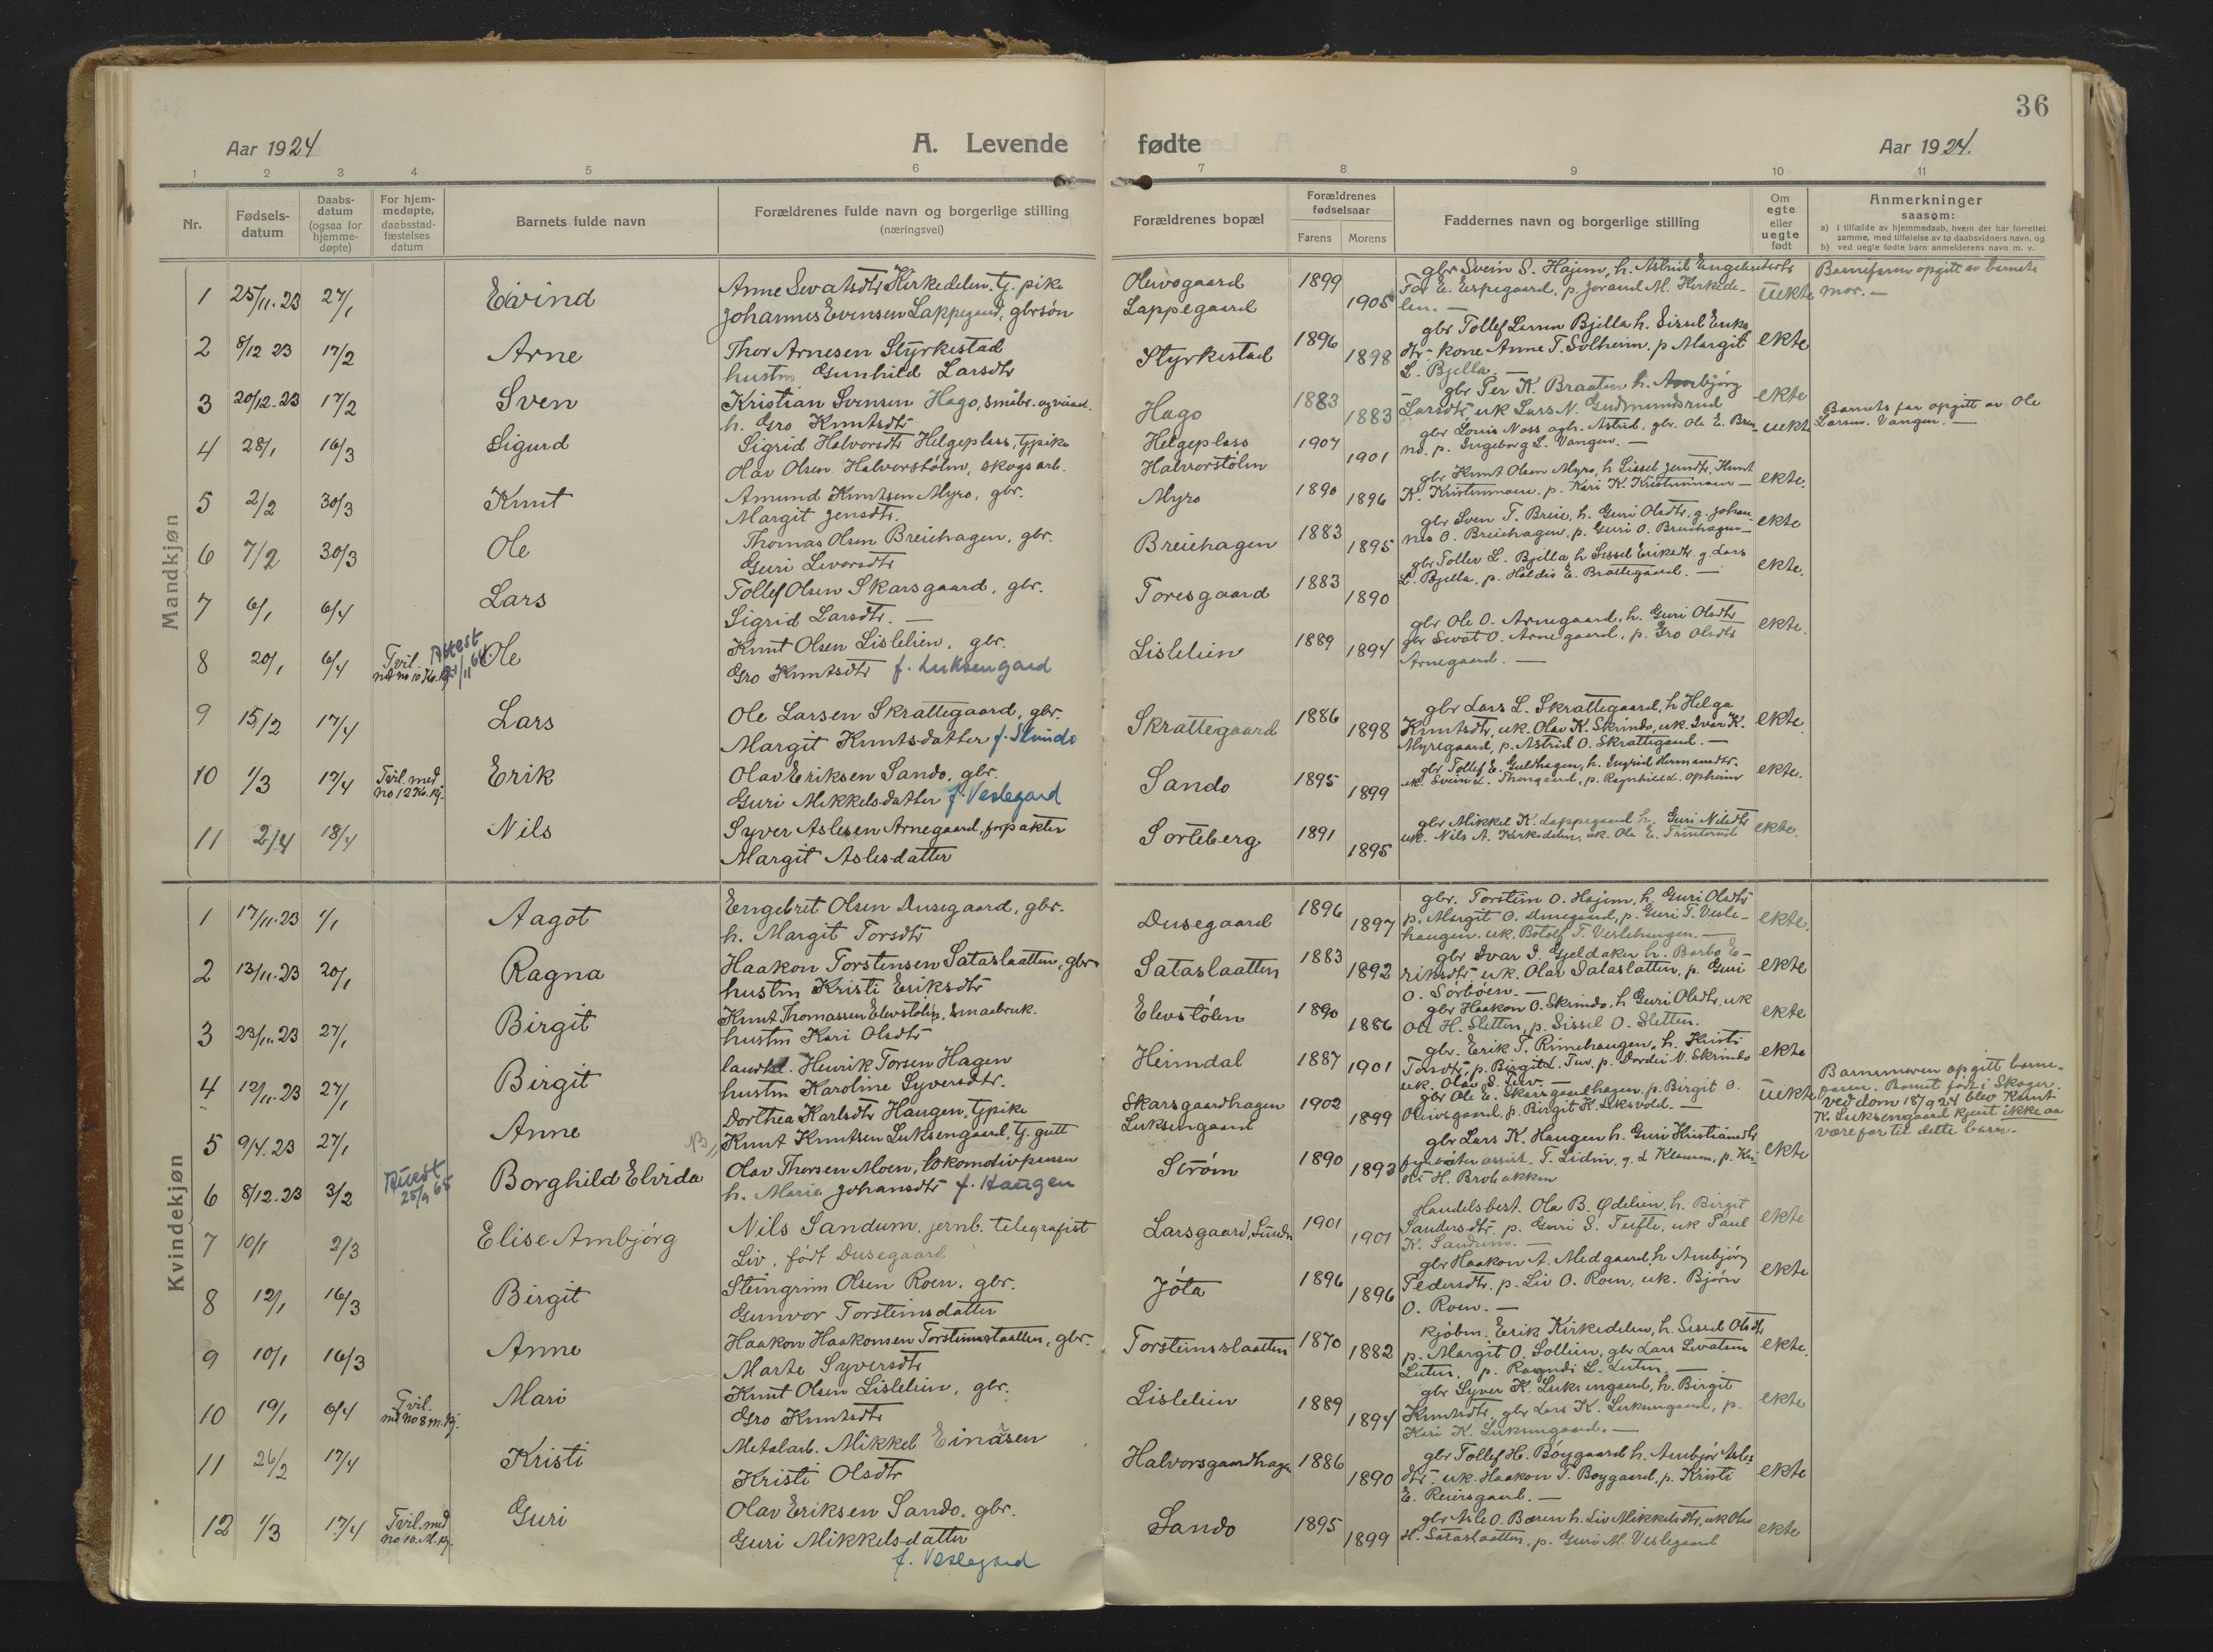 36
Aar 1924
A. Levende
fødte
Aar 1924.
1 2 3 4 5 6 7 8 9 10 11
Nr.
Fødsels-
datum
Daabs-
datum
(ogsaa for
hjemme-
døpte)
For hjem-
medøpte,
daabsstad-
fæstelses
datum
Barnets fulde navn
Forældrenes fulde navn og borgerlige stilling
(næringsvei)
Forældrenes bopæl
Forældrenes
fødselsaar
Farens Morens
Faddernes navn og borgerlige stilling
Om
egte
eller
uegte
født
Anmerkninger
saasom:
a) i tilfælde av hjemmedaab, hvem der har forrettet
samme, med tilføielse av to daabsvidners navn, og
b) ved uegte fødte barn anmelderens navn m. v.
Mandkjøn
1 25/11.23 27/1 Eivind
Anne Sevatsdtr Kirkedelen. Tj. pike
Johannes Evensen Lappegaard, gbrsøn
Olewsgaard
Lappegaard
1899
1905
gbr Svein S. Hajem, h. Astrid Engebretsdtr
Tor E. Espegaard, p. Jorand M. Kirkede-
len. —
uekte
Barnefaren opgitt av barnets
mor. —
2 8/12 23 17/2 Arne
Thor Arnesen Styrkestad
hustru Gunhild Larsdtr
Styrkestad
1896
1898
gbr Tollef Larsen Bjella h. Sissel Eriks
dtr - kone Anne T. Solheim. p Margit
L. Bjella. —
ekte
3 20/12.23 17/2 Sven
Kristian Svensen Hago, småbr. og
h. Gro Knutsdtr
Hago
1883
1883
gbr Per K. Braaten h. Ambjørg
Larsdtr uk Lars N. Gudmundsrud
ekte
4 28/1 16/3 Sigurd
Sigrid Halvorsdtr Helgeplass, tjpike
Olav Olsen Halvorstølen, skogsarb.
Helgeplass
Halvorstølen
1907
1901
gbr Louis Noss ogh. Astrid. gbr. Ole E. Bren-
no. p. Ingeborg L. Vangen. —
uekte
Barnets far opgitt av Ole
Larsen Vangen. —
5 2/2 30/3 Knut
Amund Knutsen Myro, gbr.
Margit Jensdtr.
Myro
1890
1896
gbr Knut Olsen Myro, h Sissel Jensdtr, Knut
K. Kristenmoen, p. Kari K. Kristenmoen —
ekte.
6 7/2 30/3 Ole
Thomas Olsen Breiehagen, gbr.
Guri Sevarsdtr
Breiehagen
1883
1895
gbr Sven T. Breie, h. Guri Olsdtr, g. Johan-
nes O. Breiehagen, p. Guri O. Breiehagen —
ekte
7 6/1 6/4 Lars
Tollef Olsen Skarsgaard, gbr.
Sigrid Larsdtr. —
Toresgaard
1883
1890
gbr Tollev L. Bjella, h Sissel Eriksdtr. g. Lars
L. Bjella. p. Haldis E. Brattegaard. —
ekte.
8 20/1 6/4
Tvil.
md no 10 Kv. kj.
Attest
21/11 64
Ole
Knut Olsen Lislelien, gbr.
Gro Knutsdtr f. Luksengard
Lislelien
1889
1894
gbr Ole O. Arnegaard, h. Guri Olsdtr
gbr Sevat O. Arnegaard, p. Gro Olsdtr
Arnegaard. —
ekte.
9 15/2 17/4 Lars
Ole Larsen Skrattegaard, gbr.
Margit Knutsdatter f. Skrindo
Skrattegaard
1886
1898
gbr Lars L. Skrattegaard, h Helga
Knutsdtr, uk. Olav K. Skrindo, uk. Ivar K.
Myregaard, p. Astrid O. Skrattegaard. —
ekte.
10 1/3 17/4
Tvil. med
no 12 Kv. kj.
Erik
Olav Eriksen Sando, gbr.
Guri Mikkelsdatter f. Veslegard
Sando
1895
1899
gbr Tollef E. Guldhagen, h. Ingrid Hermansdtr.
uk. Svein L. Thongaard, p. Ragnhild L. Opheim
ekte.
11 2/4 18/4 Nils
Syver Aslesen Arnegaard, forpakter
Margit Aslesdatter
Sorteberg
1891
1895
gbr Mikkel K. Lappegaard h. Guri Nilsdtr
uk. Nils A. Kirkedelen, uk. Ole E. Trinterud
ekte.
Kvindekjøn
1 17/11.23 1/1 Aagot
Engebret Olsen Dusegaard, gbr.
h. Margit Torsdtr
Dusegaard
1896
1897
gbr. Torstein O. Hajem, h. Guri Olsdtr
p. Margit O. Dusegaard, p. Guri T. Vesle-
haugen. uk. Botolf T. Veslehaugen. —
ekte.
2 13/11.23 20/1 Ragna
Haakon Torstensen Sataslaatten, gbr.
hustru Kristi Eriksdtr
Sataslaatten
1883
1892
gbr Ivar I. Gjeldaker h. Barbo E-
riksdtr, uk. Olav Sataslatten, p. Guri
O. Sørbøen. —
ekte
3 23/11.23 27/1 Birgit
Knut Thomassen Elevstølen, smaabruk.
hustru Kari Olsdtr
Elevstølen
1890
1886
gbr Haakon O. Skrindo, h Guri Olsdtr, uk
Ole H. Sletten, p. Sissel O. Sletten.
ekte
4 12/11.23 27/1 Birgit
landhl. Henrik Torsen Hagen
hustru Karoline Syversdtr.
Heimdal
1887
1901
gbr. Erik T. Rimehaugen, h. Kristi
Torsdtr, p. Birgit L. Tuv, p. Dordei N. Skrindo
uk. Olav S. Tuv. —
ekte
5 9/4.23 27/1 Anne
Dorthea Karlsdtr Haugen, tjpike
Knut Knutsen Luksengaard, tj. gutt
Skarsgaardhagen
Luksengaard
1902
1899
gbr Ole E. Skarsgaardhagen, p. Birgit O.
Olewsgaard, p. Birgit K. Leksvold. —
uekte
Barnemoren opgitt barne-
faren. Barnet født i Skoger.
ved dom 18/9 24 blev Knut
K. Luksengaard kjent ikke aa
være far til dette barn.
6 8/12.23 3/2
Attest
25/9 65
Borghild Elvida
Olav Thorsen Moen, lokomotivpusser
h. Marie Johansdtr f. Haugen
Strøm
1890
1893
gbr Lars K. Haugen h. Guri Kristiansdtr
fyrbøter assist. T. Lidin, g. L Klausen, p. Kri-
sti H. Brobakken
ekte
7 10/1 2/3 Elise Ambjørg
Nils Sandum, jernb. telegrafist
Liv, født Dusegaard
Larsgaard, Sundre
1901
1901
Handelsbest. Ola B. Ødelien, h. Birgit
Sandersdtr. p. Guri S. Tufte, uk Paul
K. Sandum. —
ekte
8 12/1 16/3 Birgit
Steingrim Olsen Roen, gbr.
Gunvor Torsteinsdatter
Jøta
1896
1896
gbr Haakon A. Medgaard, h Ambjørg
Pedersdtr. p. Liv O. Roen, uk. Bjørn
O. Roen. —
ekte
9 10/1 16/3 Anne
Haakon Haakonsen Torsteinsslaatten, gbr.
Marte Syversdtr
Torsteinsslaatten
1870
1882
kjøbm. Erik Kirkedelen, h. Sissel Olsdtr
p. Margit O. Sollien, gbr Lars Sevatsen
Luten, p. Ragndi L. Luten. —
ekte.
10 19/1 6/4
Tvil.
md no 8 m. kj.
Mari
Knut Olsen Lislelien, gbr.
Gro Knutsdtr
Lislelien
1889
1894
gbr Syver K. Luksengaard, h. Birgit
Knutsdtr, gbr Lars K. Luksengaard, p.
Kari K. Luksengaard. —
ekte
11 26/2 17/4 Kristi
Metalarb. Mikkel Einarsen
Kristi Olsdtr
Halvorsgaardhagen
1886
1890
gbr Tollef H. Bøygaard h. Ambjør Asles
dtr, uk. Haakon T. Bøygaard, p. Kristi
E. Reiersgaard. —
ekte
12 1/3 17/4
Tvil. med
no 10. M. kj.
Guri
Olav Eriksen Sando, gbr.
Guri Mikkelsdatter
f. Veslegard
Sando
1895
1899
gbr Asle O. Bæren h. Liv Mikkelsdtr, uk Olav
H. Sataslaatten, p. Guri M. Veslegaard
ekte